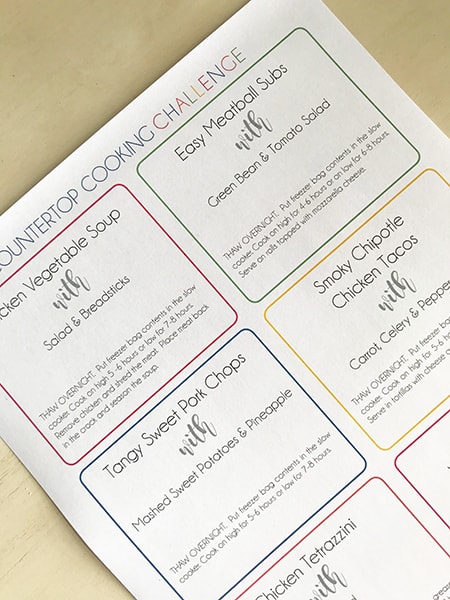 COUNTERTOP COOKING CHALLENGE
Easy Meatball Subs
with
Green Bean & Tomato Salad
THAW OVERNIGHT. Put freezer bag contents in the slow
cooker. Cook on high for 4-6 hours or on low for 6-8 hours.
Serve on rolls topped with mozzarella cheese.
Vegetable Soup
with
Salad & Breadsticks
THAW OVERNIGHT. Put freezer bag contents in the slow
cooker. Cook on high 5-6 hours or low for 7-8 hours.
Remove chicken and shred the meat. Place meat back
in the crock and season the soup.
Smoky Chipotle
Chicken Tacos
with
Carrot, Celery & Pepper
THAW OVERNIGHT. Put freezer
cooker. Cook on high for 5-6
Serve in tortillas with cheese
Tangy Sweet Pork Chops
with
Mashed Sweet Potatoes & Pineapple
THAW OVERNIGHT. Put freezer bag contents in the slow
cooker. Cook on high for 5-6 hours or low for 7-8 hours.
Chicken Tetrazzini
with